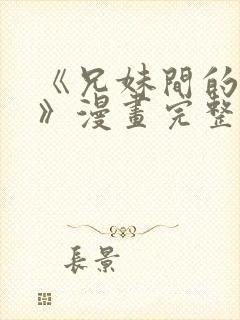 《兄妹間的
》漫畫完整
長景